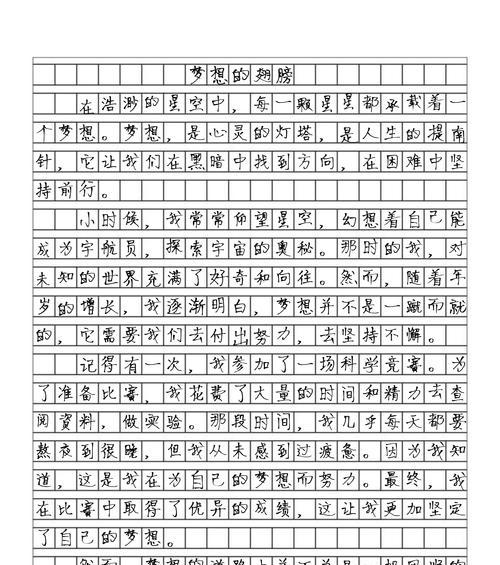 梦想的翅膀
在浩渺的星空中，每一颗星星都承载着一
个梦想。梦想，是心灵的灯塔，是人生的提南
针，它让我们在黑暗中找到方向，在困难中坚
持前行。
小时候，我常常仰望星空，幻想着自己能
成为宇航员，探索宇宙的奥秘。那时的我，对
未知的世界充满了好奇和向往。然而，随着年
岁的增长，我逐渐明白，梦想并不是一蹴而就
的，它需要我们去付出努力，去坚持不懈。
记得有一次，我参加了一场科学竞赛。为
了准备比赛，我花费了大量的时间和精力去查
阅资料，做实验。那段时间，我几乎每天都要
熬夜到很晚，但我从未感到过疲惫。因为我知
道，这是我在为自己的梦想而努力。最终，我
在比赛中取得了优异的成绩，这让我更加坚定
了自己的梦想。